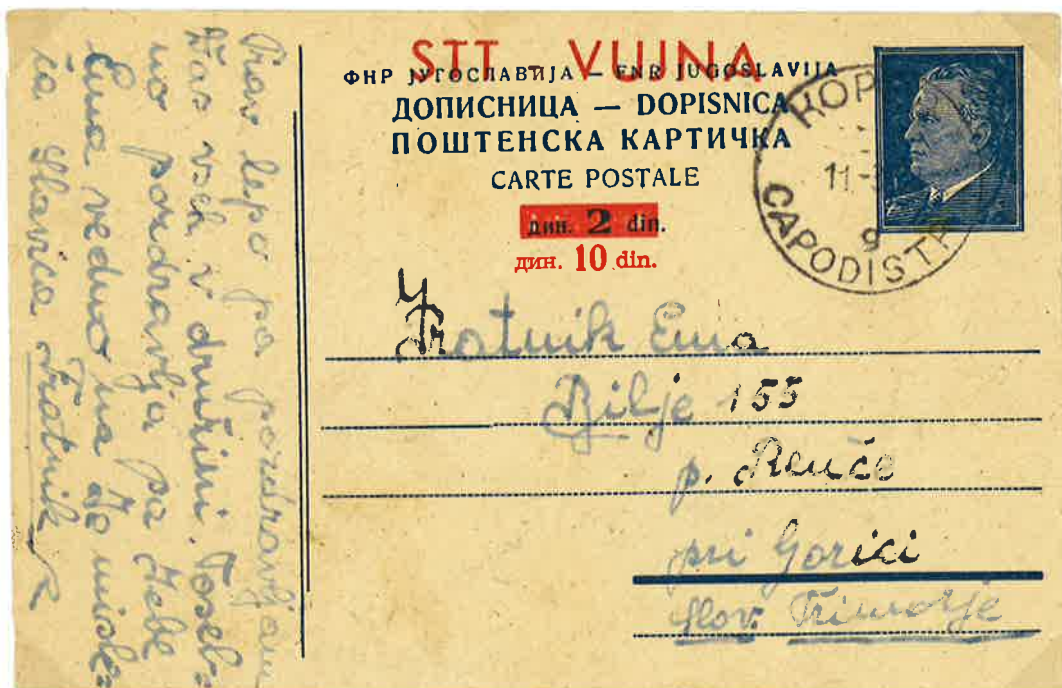 STT VUJNA
ФНР ЈУГОСЛАВИЈА — FNR JUGOSLAVIJA
ДОПИСНИЦА — DOPISNICA
ПОШТЕНСКА КАРТИЧКА
CARTE POSTALE
дин. 2 din.
дин. 10 din.
KOP
11-
9
CAPODIST
Fratnik Ema
Bilje 155
p. Renče
pri Gorici
Slov. Primorje
Prav lepo pa pozdravljam
Vas vseh v družini. Poseb-
no pozdravlja pa Tebe
Ema vedno na Te misle-
ča Slavica Fratnik